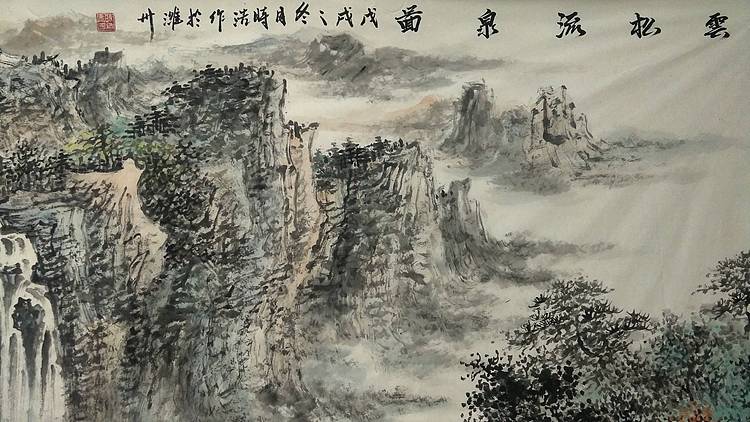 雲松流泉啚戊戌之冬月時浩作於濰州